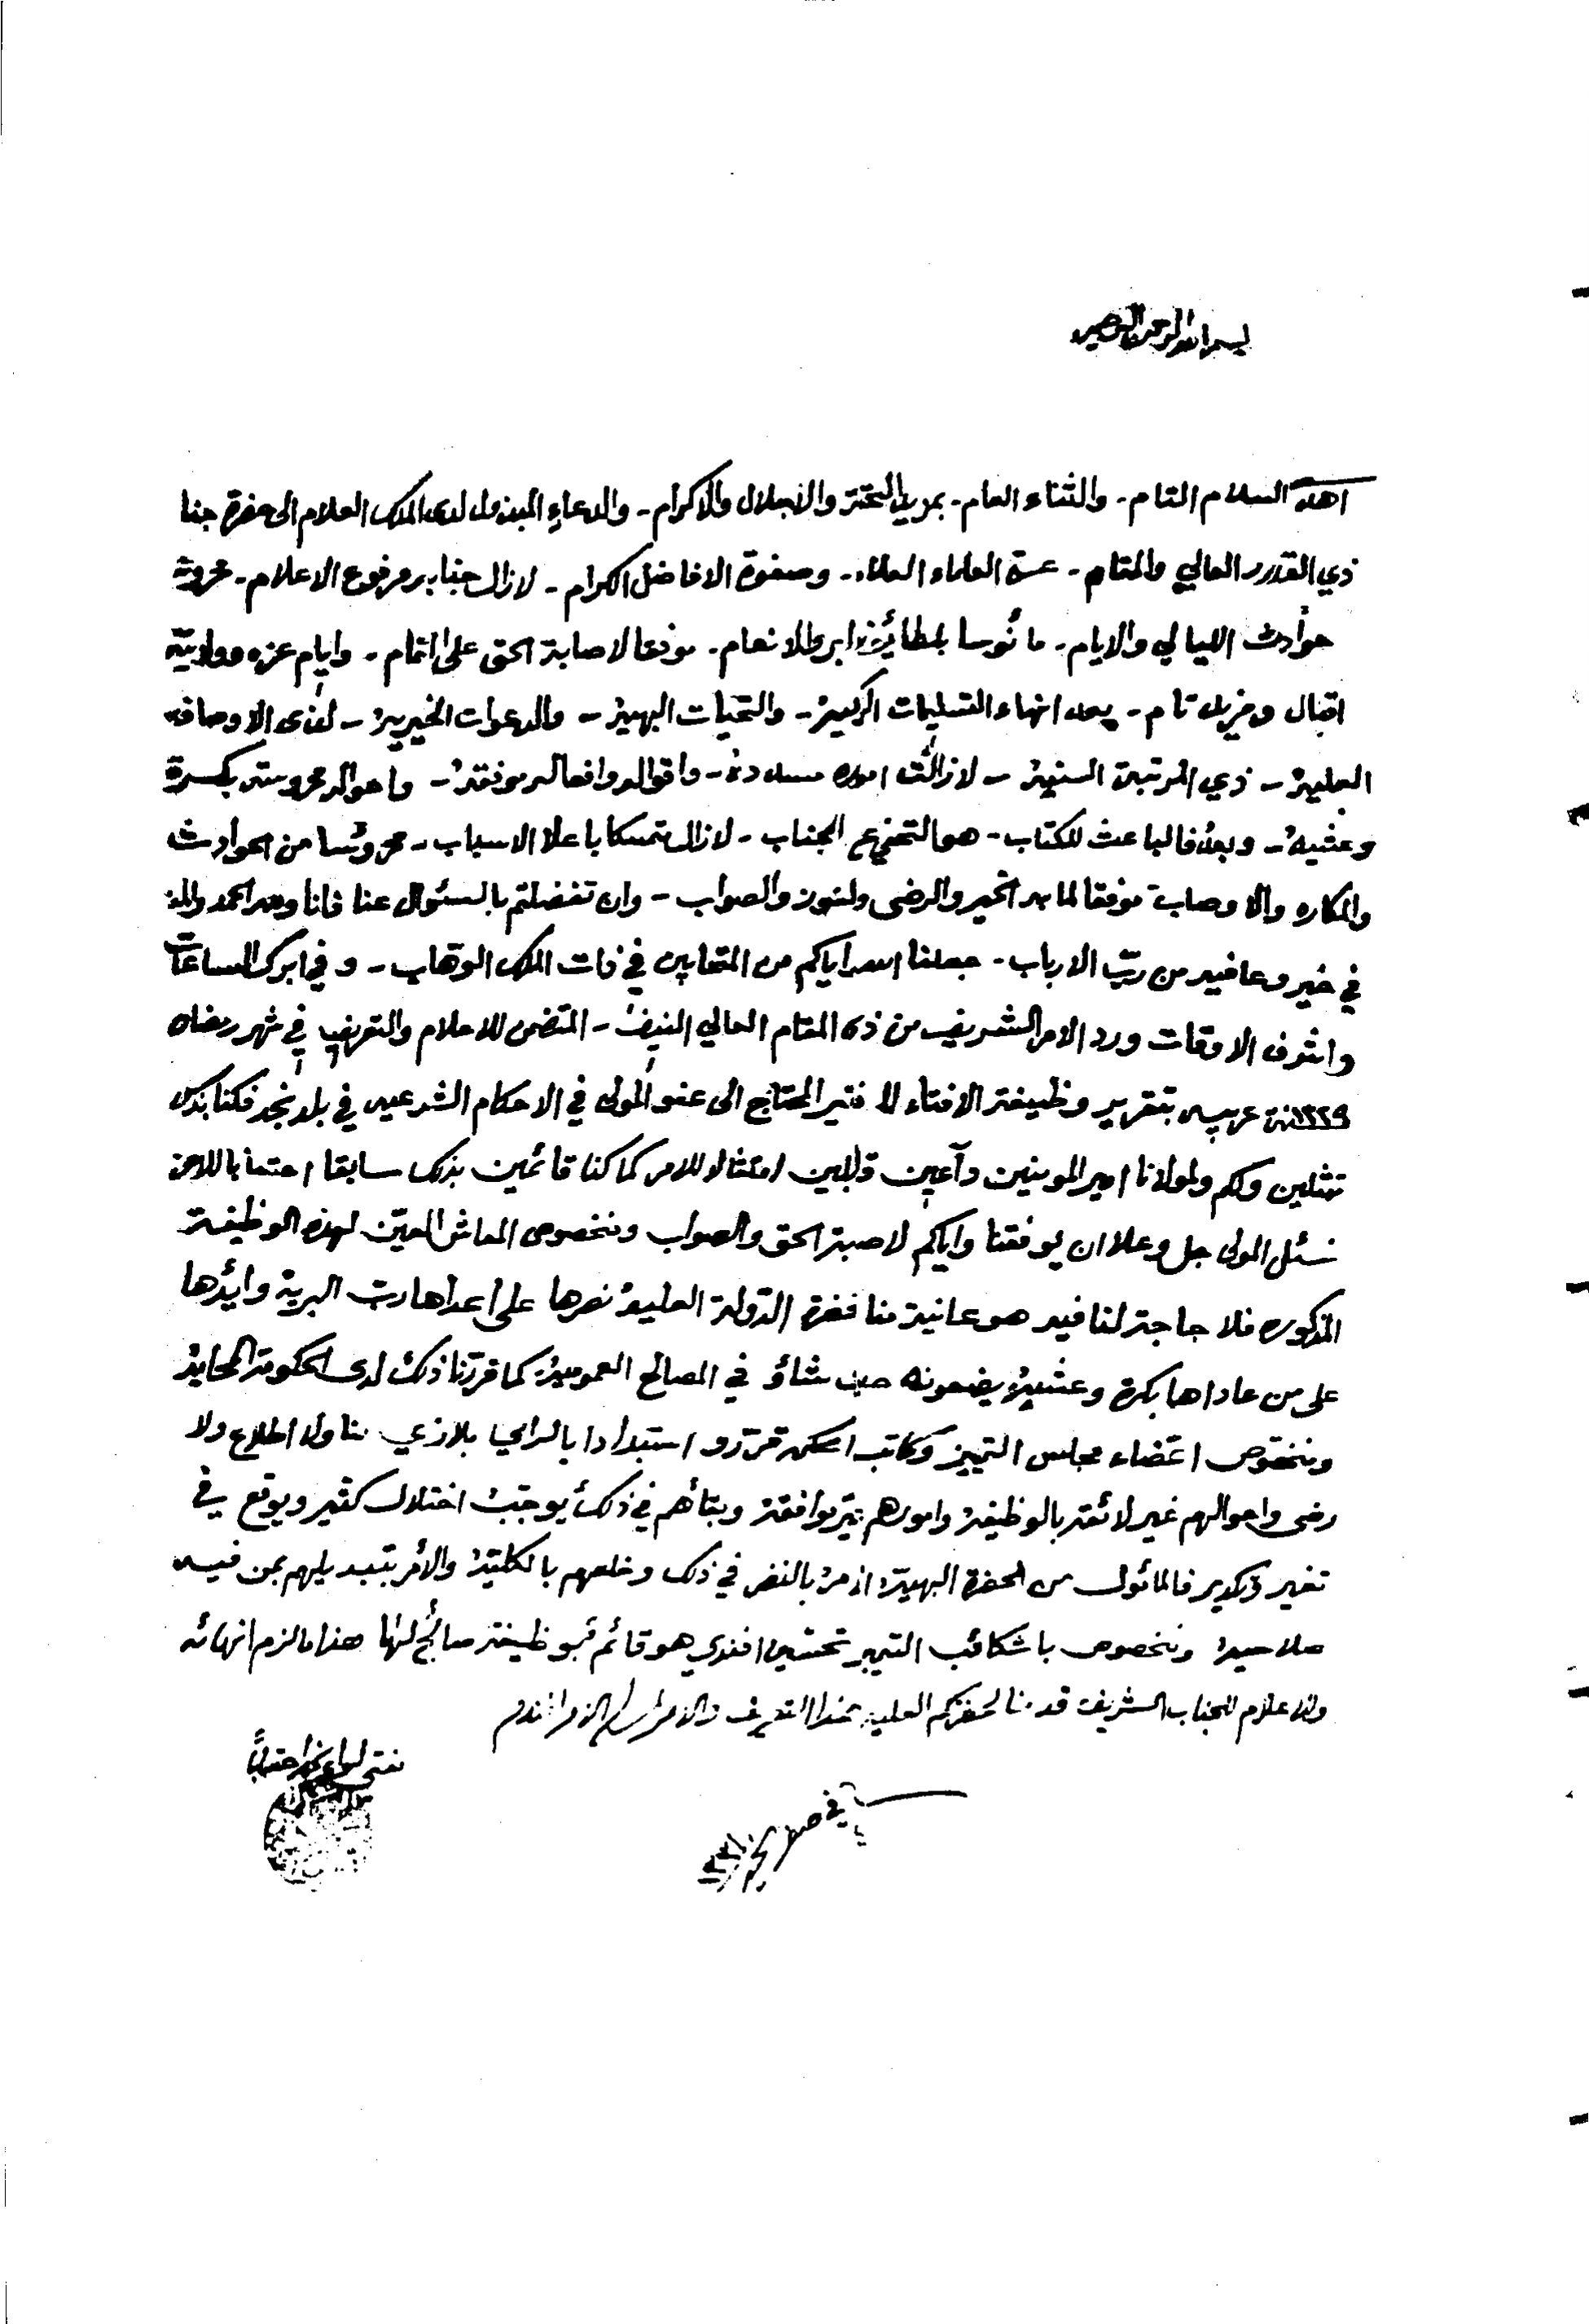 بسم الله الرحمن الرحيم
اهداء السلام التام ـ والثناء العام ـ بمزيد التحية والاجلال والاكرام ـ والدعاء المبذول لدى الملك العلام الى حضرة جنا
ذي القدر العالي والمقام ـ عمدة العلماء العلام ـ وصفوة الافاضل الكرام ـ لازال جنابه مرفوع الاعلام ـ محروسة
حوادث الليالي والايام ـ مأنوسا بلطائف البر والانعام ـ موفقا لاصابة الحق على اتمام ـ وايام عزه
اقبال ومزيد تام ـ بعد انهاء التسليمات الزكية ـ والتحيات البهية ـ والدعوات الخيرية ـ لذى الاوصاف
العلية ـ ذي المرتبة السنية ـ لازالت اموره مسددة ـ واقواله وافعاله موفقة ـ واحواله محروسة بكرة
وعشية ـ وبعد فالباعث للكتاب ـ هو التحفي عن الجناب ـ لازال متمسكا باعلا الاسباب ـ محروسا من الحوادث
والمكاره والاوصاب موفقا لما به الخير والرضى والفوز والصواب ـ وان تفضلتم بالسئوال عنا فانا ولله الحمد والمنة
في خير وعافيه من رب الارباب ـ جعلنا الله واياكم من المتحابين في ذات الملك الوهاب ـ وفي ابرك الساعات
واشرف الاوقات ورد الامر الشريف من ذى المقام العالي المنيف ـ المتضمن للاعلام والتعريف في شهر رمضان
١٢٨٩ سنة عربيه بتقرير وظيفة الافتاء للفقير المحتاج الى عفو المولى في الاحكام الشرعيه في بلد نجد فكنا بذلك
ممتثلين ولكم ولمولانا امير المومنين داعين قابلين امتثالا للامر كما كنا قائمين بذلك سابقا احتسابا للاجر
نسئل المولى جل وعلا ان يوفقنا واياكم لاصبة الحق والصواب وبخصوص المعاش المعين لهذه الوظيفة
المذكوره فلا حاجة لنا فيه هو عانية منا لحضرة الدولة العلية نصرها على اعداها رب البرية وايدها
على من عاداها بكرة وعشية يضعونه حيث شاؤ في المصالح العمومية كما قررنا ذلك لدى الحكومة المحلية
وبخصوص اعضاء مجلس التمييز وكاتب الحكمه تقررو استبدادا بالراي بلا راي منا ولا اطلاع ولا
رضى واحوالهم غير لائقه بالوظيفة وامورهم غير موافقة وبقائهم في ذلك يوجب اختلال كثير ويوقع في
تغير وتكدير فالمأمول من الحضرة البهية ازمة بالنض في ذلك وخلعهم بالكلية والأمر بتبديلهم بمن فيه
صلاحية وبخصوص باشكاتب التحرير تحسين افندي هو قائم بوظيفته صالح لها هذا ما لزم انهائه
والاعلام للجناب الشريف قدمنا لحضرتكم العلية هذا التعريف والامر لمن له الامر افندم
مفتي لواء نجد
في صفر الخير